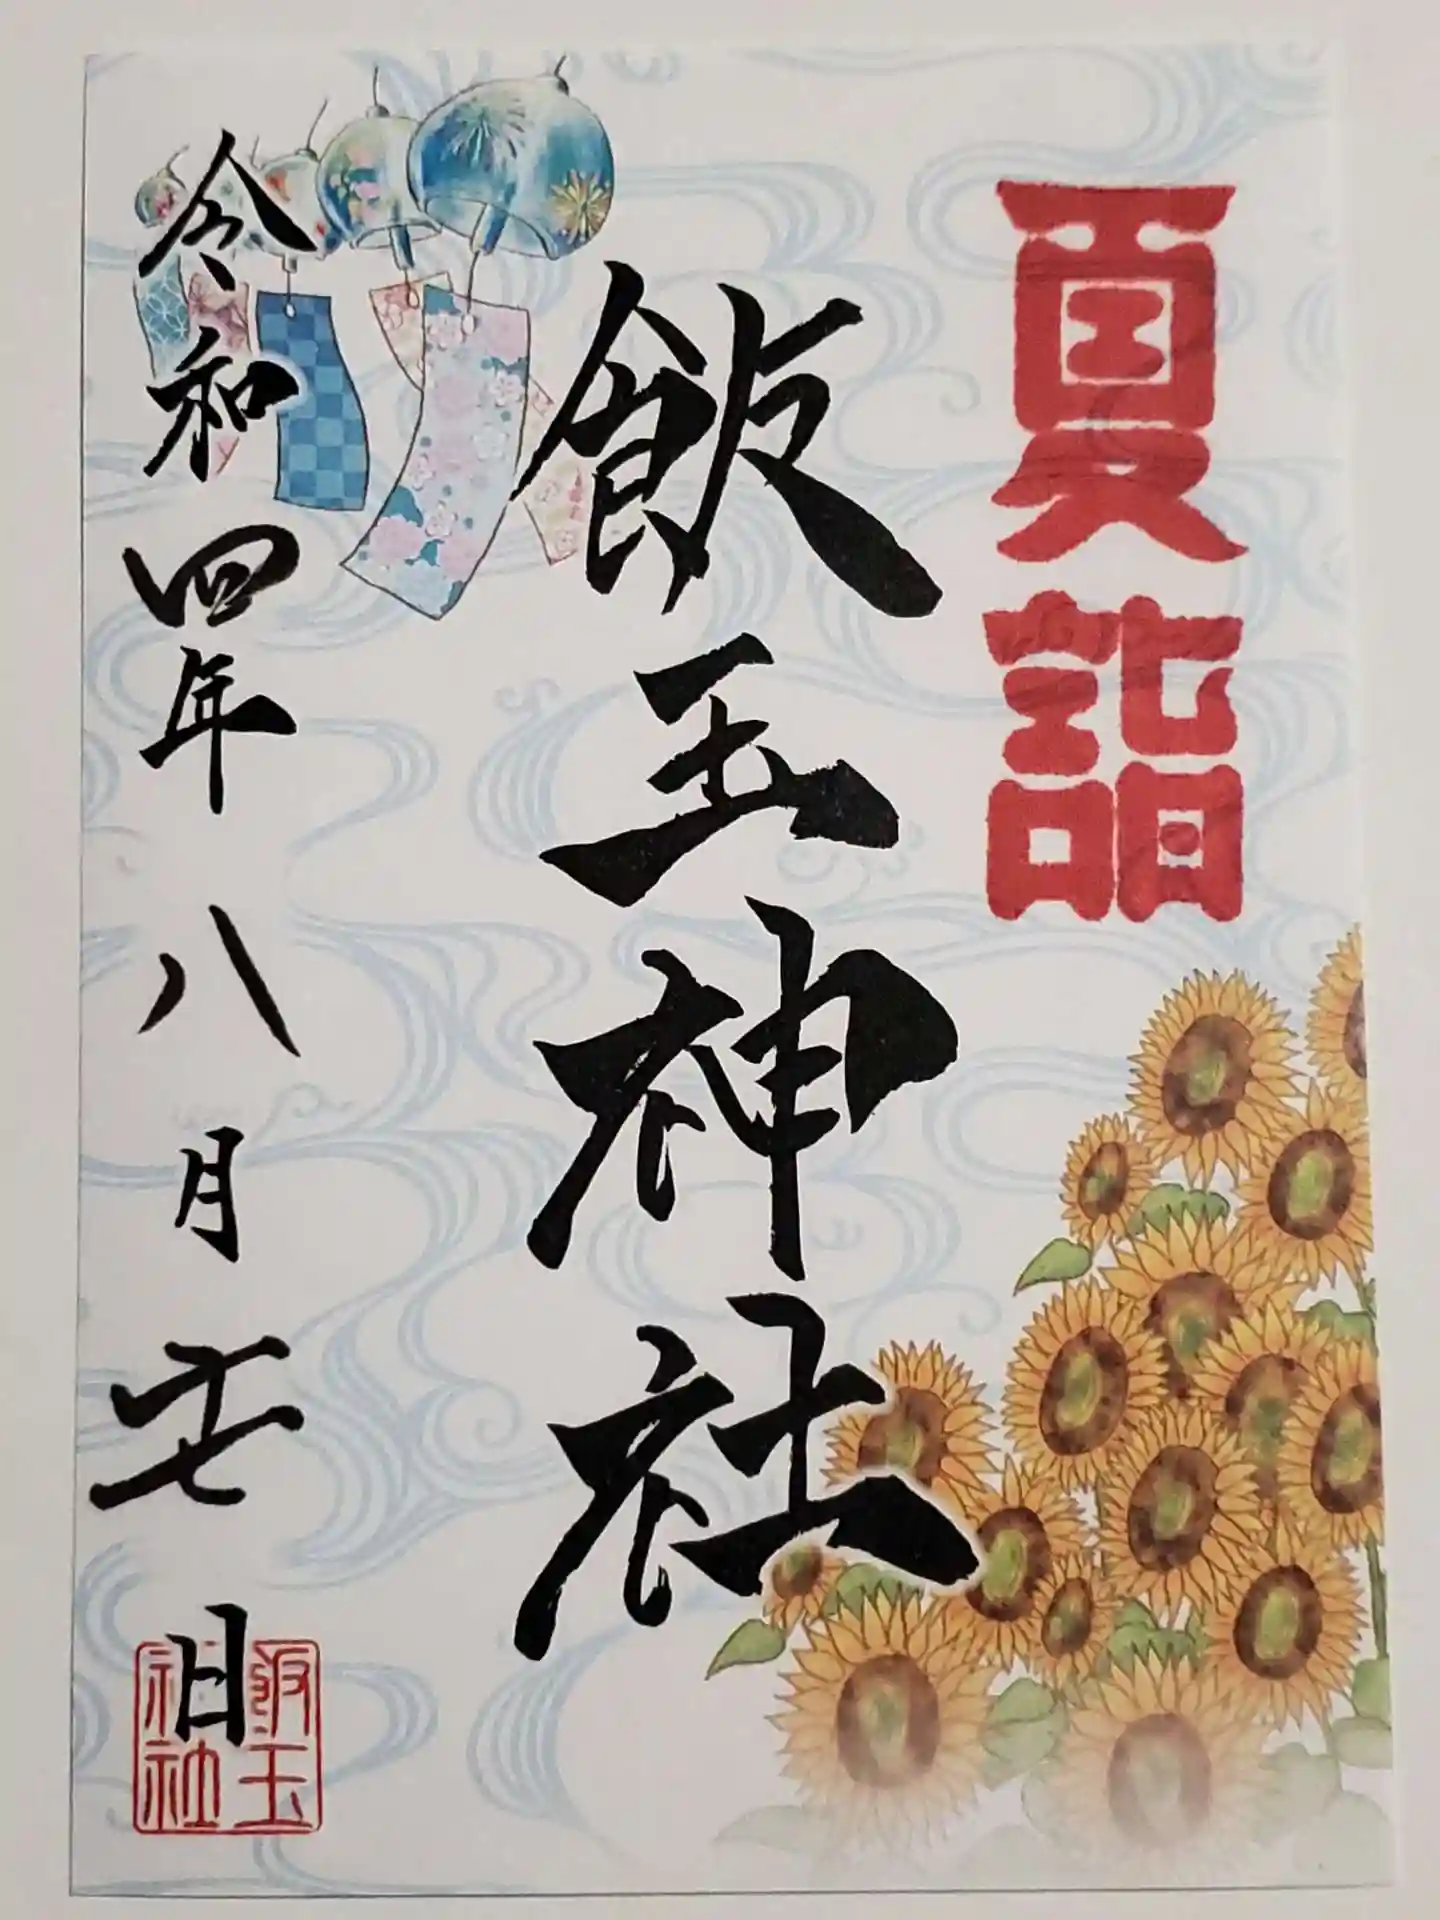 夏詣
飯玉神社
令和四年八月 日
飯玉
神社